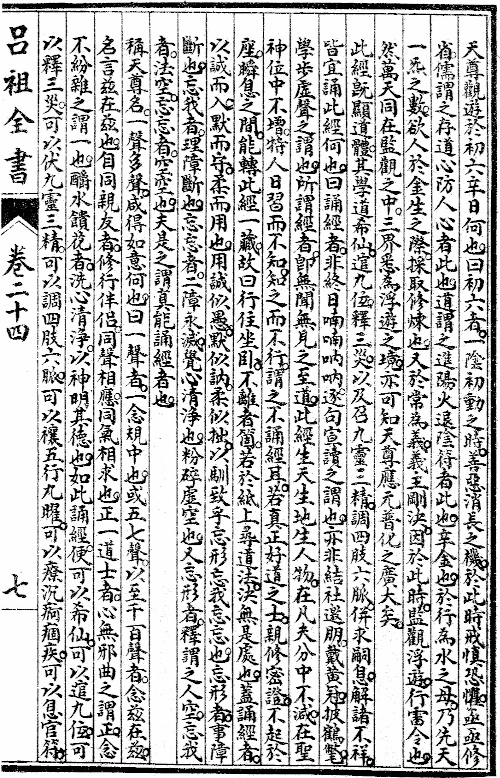 天尊觀遊於初六辛日何也曰初六者一陰初動之時善惡消長之機於此時戒愼恐懼亟亟修
省儒謂之存道心防人心者此也道謂之進陽火退陰符者此也辛金也於行為水之母乃先天
一炁之數欲人於金生之際採取修煉也又於常為義義主剛決因於此時監觀浮遊行書令也
然萬天同在監觀之中三界悉為浮遊之境亦可知天尊應元普化之廣大矣
此經旣顯道體其學道希仙逭九厄釋三災以及召九靈三精調四肢六脈併求嗣息解諸不祥
皆宜誦此經何也曰誦經者非終日喃喃吶吶逐句宣讀之謂也亦非結社邀朋戴黃冠披鶴氅
學步虛聲之謂也所謂經者卽無聞無見之至道此經生天生地生人物在凡夫分中不減在聖
神位中不增特人日習而不知知之而不行謂之不誦經耳若真正好道之士親修密證不起於
座瞬息之間能轉此經一藏故曰行住坐臥不離者箇若於紙上尋道法決無是處也蓋誦經者
以誠而入默而守柔而用也用誠似愚默似訥柔似拙以馴致乎忘形忘我忘忘也忘形者事障
斷也忘我者理障斷也忘忘者二障永滅覺心清淨也粉碎虛空也又忘形者釋謂之人空忘我
者法空忘忘者空空也夫是之謂真能誦經者也
稱天尊名一聲多聲咸得如意何也曰一聲者一念規中也或五七聲以至千百聲者念茲在茲
名言茲在茲也自同親友者修行伴侶同聲相應同氣相求也正一道士者心無邪曲之謂正念
不紛雜之謂一也酌水饋花者洗心清淨以神明其德也如此誦經便可以希仙可以逭九厄可
以釋三災可以伏九靈三精可以調四肢六脈可以禳五行九曜可以療沉痾痼疾可以息官符
呂祖全書
卷二十四
七